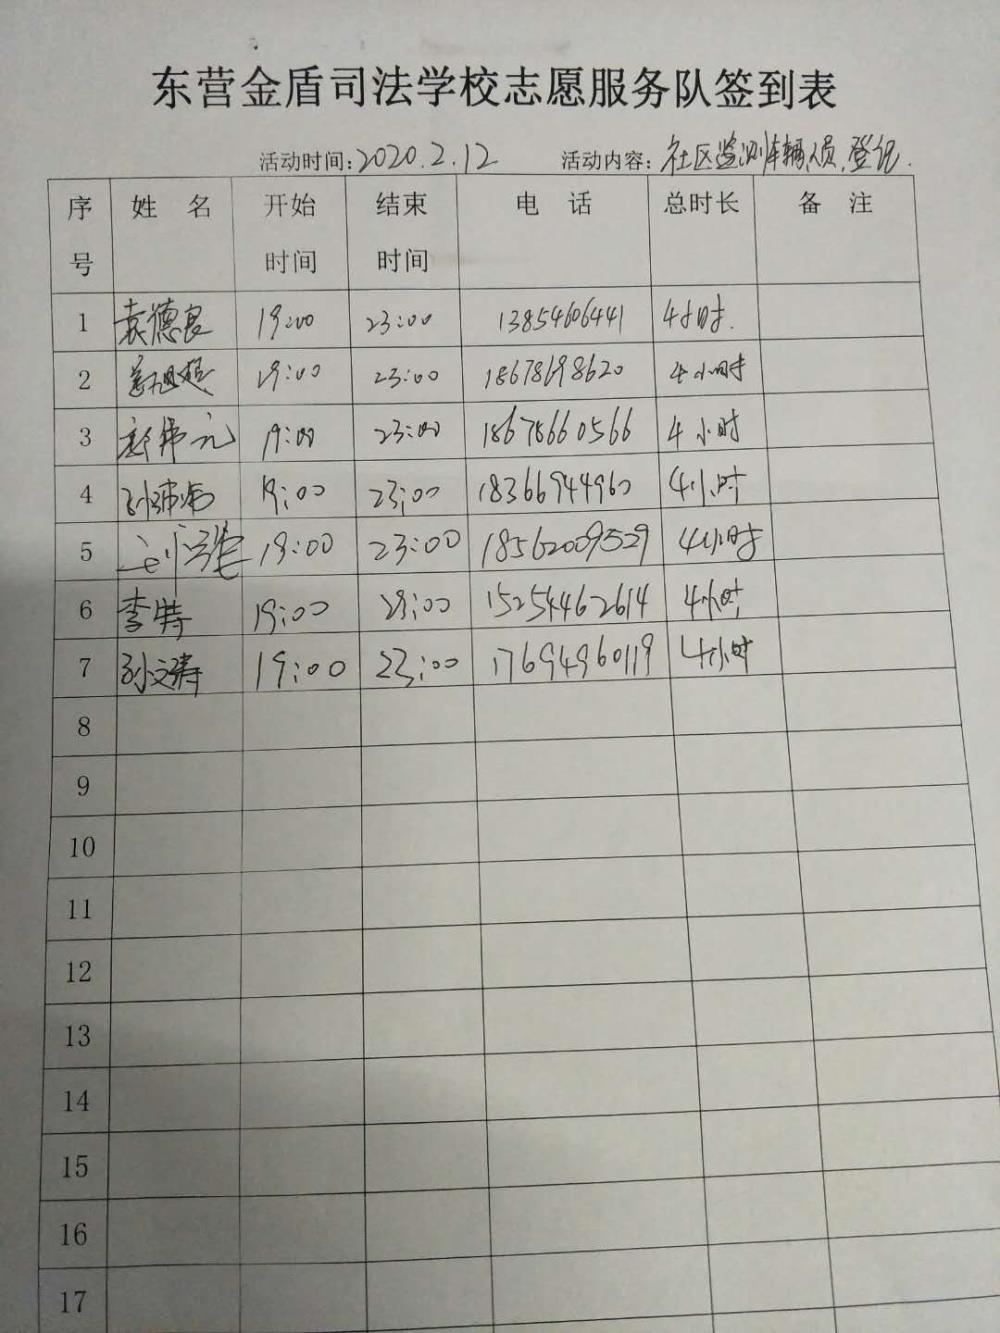 东营金盾司法学校志愿服务队签到表
活动时间:2020.2.12 活动内容:社区监测车辆人员登记.
序号 姓名 开始时间 结束时间 电话 总时长 备注
1 袁德良 19:00 23:00 13854606441 4小时.
2 19:00 23:00 18678698620 4小时
3 彭伟元 19:00 23:00 18678660566 4小时
4 19:00 23:00 18366944960 4小时
5 19:00 23:00 18562009529 4小时
6 李特 19:00 23:00 15254462614 4小时
7 孙文涛 19:00 23:00 17694960119 4小时
8
9
10
11
12
13
14
15
16
17